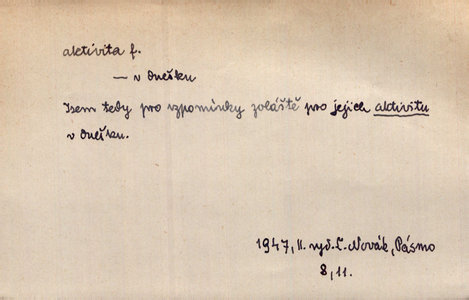 aktivita f.
— v dnešku
Jsem tedy pro vzpomínky zvláště pro jejich aktivitu
v dnešku.
1947, II. vyd. L. Novák, Pásmo
8, 11.